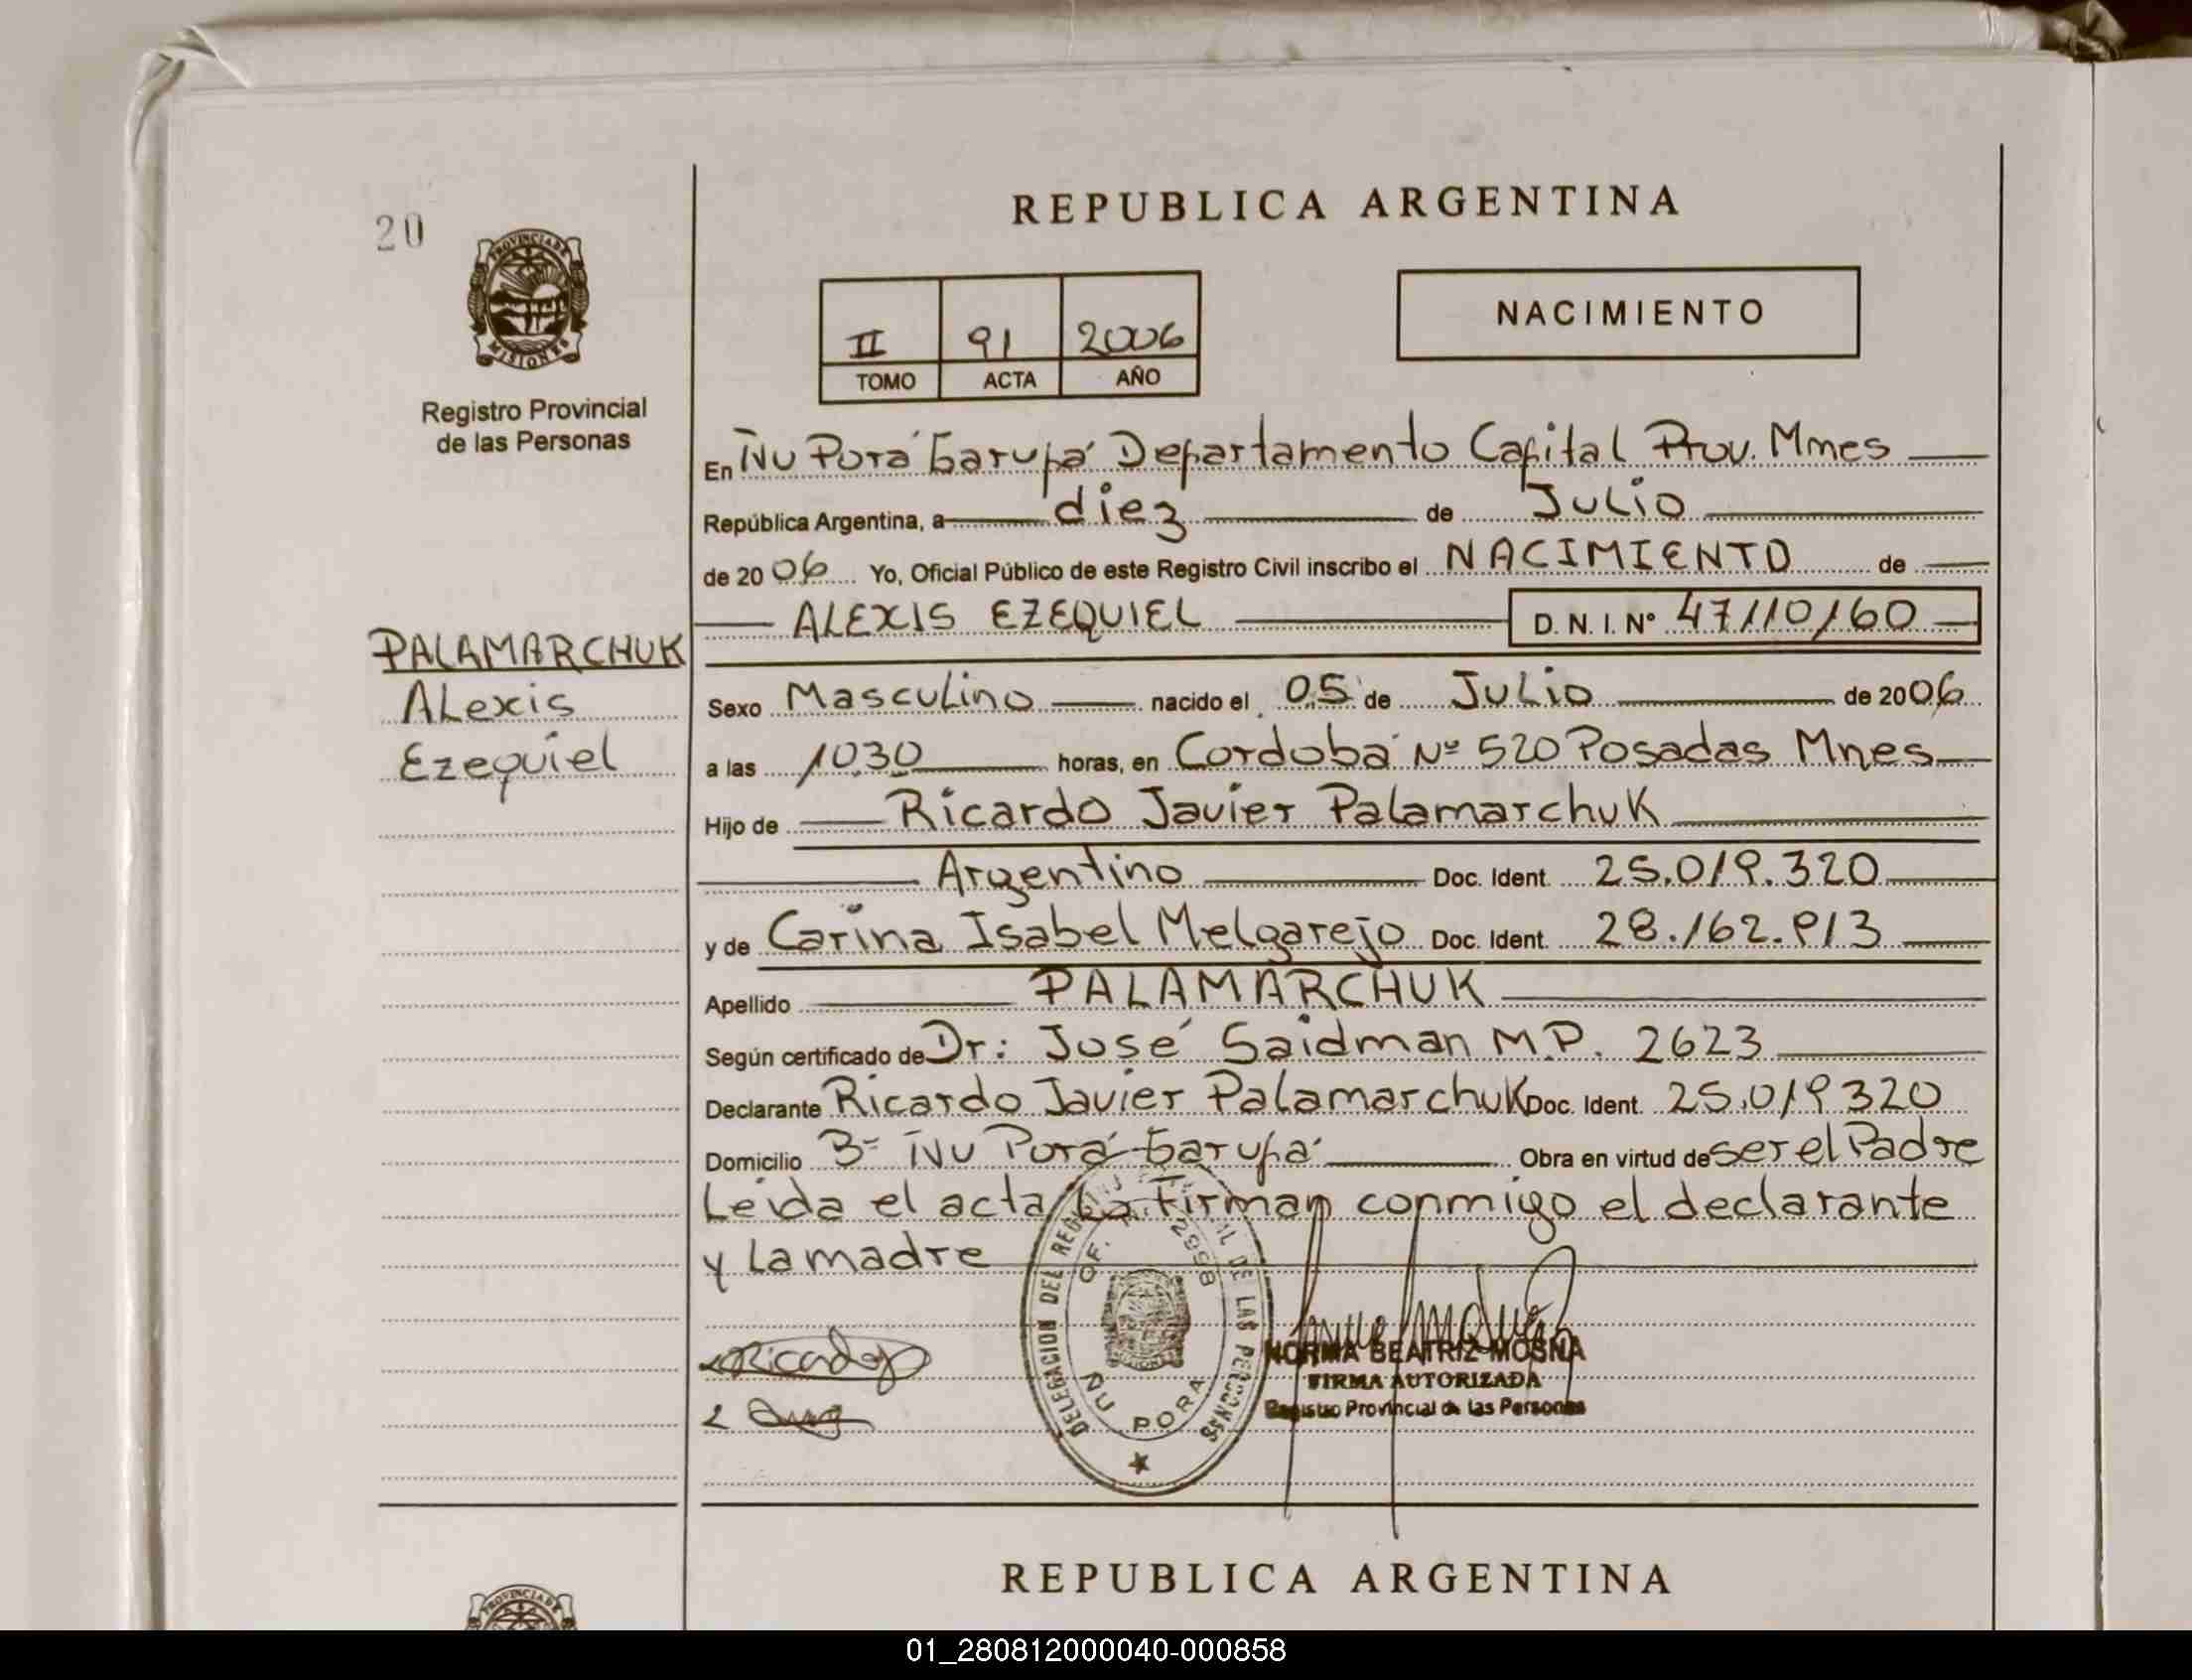 20
PROVINCIA DE
MISIONES
Registro Provincial
de las Personas
PALAMARCHUK
Alexis
Ezequiel
REPUBLICA ARGENTINA
II 91 2006
TOMO ACTA AÑO
NACIMIENTO
En Ñu Porá Garupá Departamento Capital Prov. Mnes
República Argentina, a diez de Julio
de 2006 Yo, Oficial Público de este Registro Civil inscribo el NACIMIENTO de
ALEXIS EZEQUIEL D. N. I. Nº 47110160
Sexo Masculino nacido el 05 de Julio de 2006
a las 10.30 horas, en Cordoba Nº 520 Posadas Mnes
Hijo de Ricardo Javier Palamarchuk
Argentino Doc. Ident. 25.019.320
y de Carina Isabel Melgarejo Doc. Ident. 28.162.913
Apellido PALAMARCHUK
Según certificado de Dr: José Saidman M.P. 2623
Declarante Ricardo Javier Palamarchuk Doc. Ident. 25.019320
Domicilio Bº Ñu Porá Garupá Obra en virtud de ser el Padre
Leida el acta La Firman conmigo el declarante
y La madre
DELEGACION DEL DE LAS PERSONAS
OF. 2998
ÑU PORA
NORMA BEATRIZ MOSNA
FIRMA AUTORIZADA
Registro Provincial de las Personas
REPUBLICA ARGENTINA
PROVINCIA DE
01_280812000040-000858